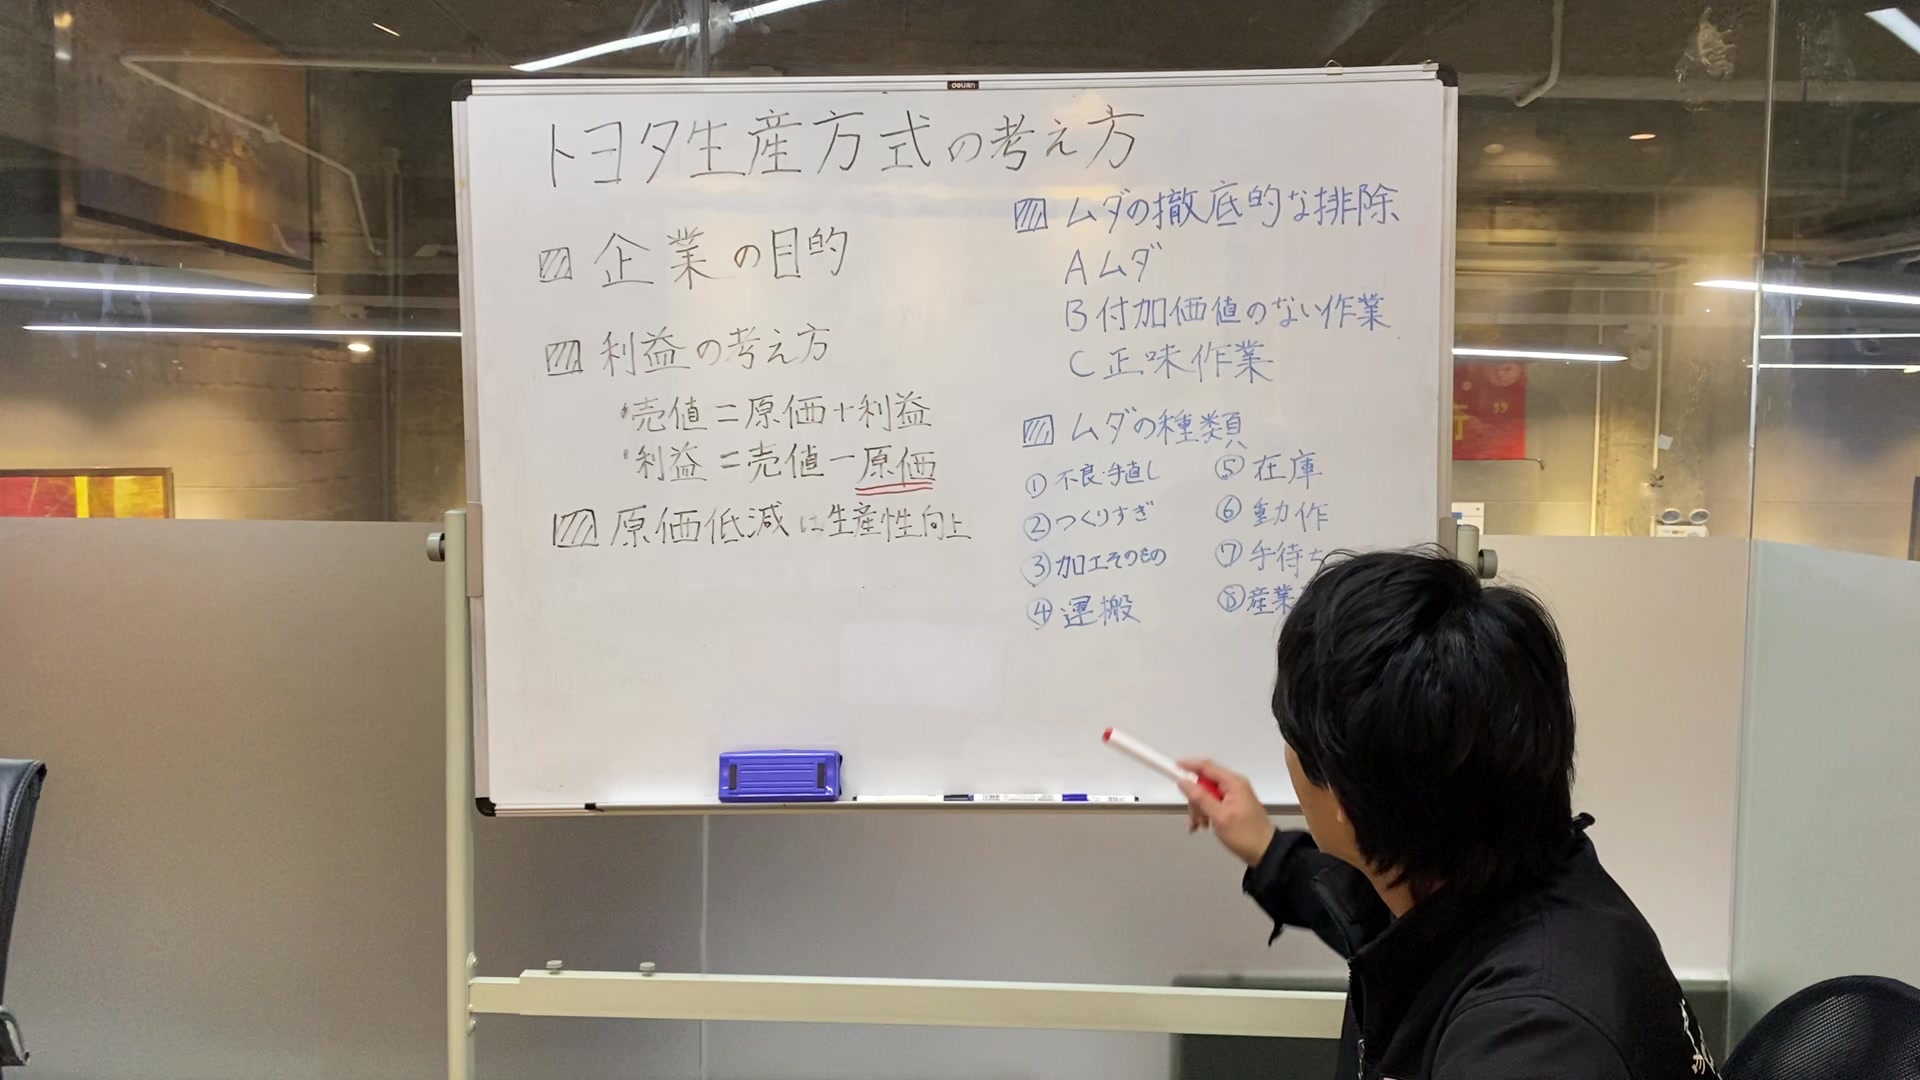 deli
トヨタ生産方式の考え方
企業の目的
利益の考え方
・売値=原価+利益
・利益=売値-原価
原価低減は生産性向上
ムダの徹底的な排除
A ムダ
B 付加価値のない作業
C 正味作業
ムダの種類
① 不良・手直し
② つくりすぎ
③ 加工そのもの
④ 運搬
⑤ 在庫
⑥ 動作
⑦ 手待ち
⑧ 産業
行”